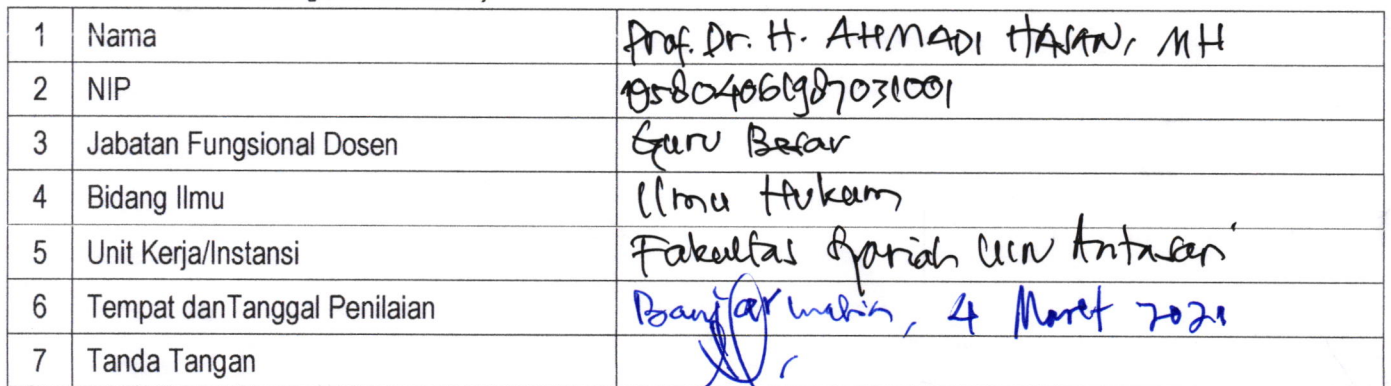 1 Nama Prof. Dr. H. AHMADI HASAN, MH
2 NIP 195804061987031001
3 Jabatan Fungsional Dosen Guru Besar
4 Bidang Ilmu Ilmu Hukum
5 Unit Kerja/Instansi Fakultas Syariah UIN Antasari
6 Tempat danTanggal Penilaian Banjarmasin, 4 Maret 2021
7 Tanda Tangan